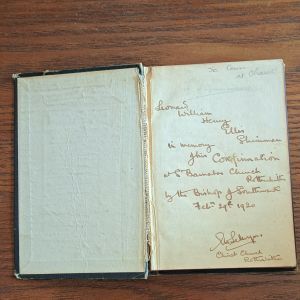 To
at
Leonard
William
Henry
Ellis
in memory
of his Confirmation
at St Barnabas Church
Rotherhithe
by the Bishop of Southwark
Feby 29th 1920
Christ Church
Rotherhithe